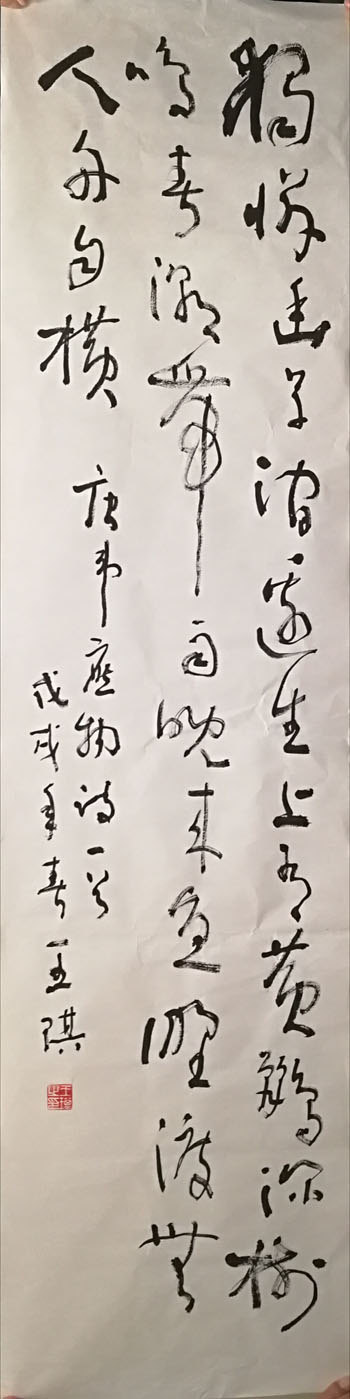 獨憐幽草澗邊生上有黃鸝深樹
鳴春潮帶雨晚來急野渡無
人舟自橫
唐韋應物詩一首
戊戌年春王琪